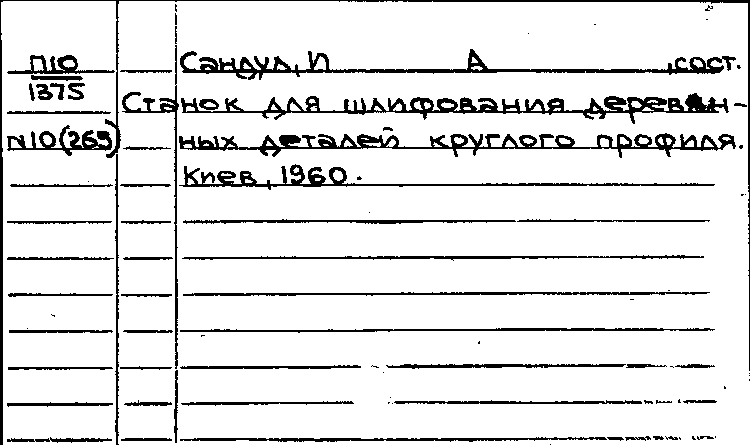 П10
1375
N10(269)
Сандул, И А , сост.
Станок для шлифования деревян-
ных деталей круглого профиля.
Киев, 1960.